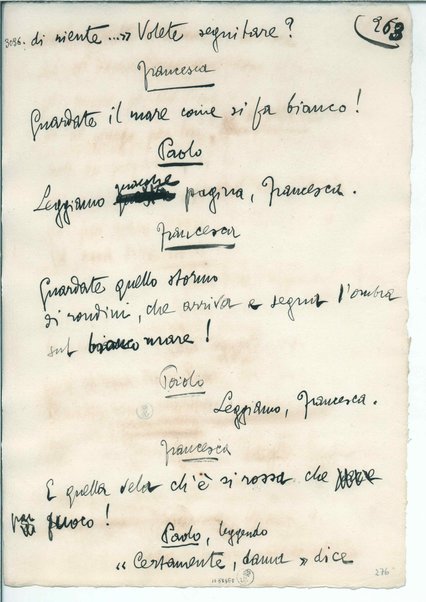 3096. di niente...» Volete seguitare? 263
Francesca
Guardate il mare come si fa bianco!
Paolo
Leggiamo qualche pagina, Francesca.
Francesca
Guardate quello stormo
di rondini, che arriva e segna l'ombra
sul bianco mare!
Paolo
Leggiamo, Francesca.
Francesca
E quella vela ch'è sì rossa che
par fuoco!
Paolo, leggendo
«Certamente, dama» dice
276